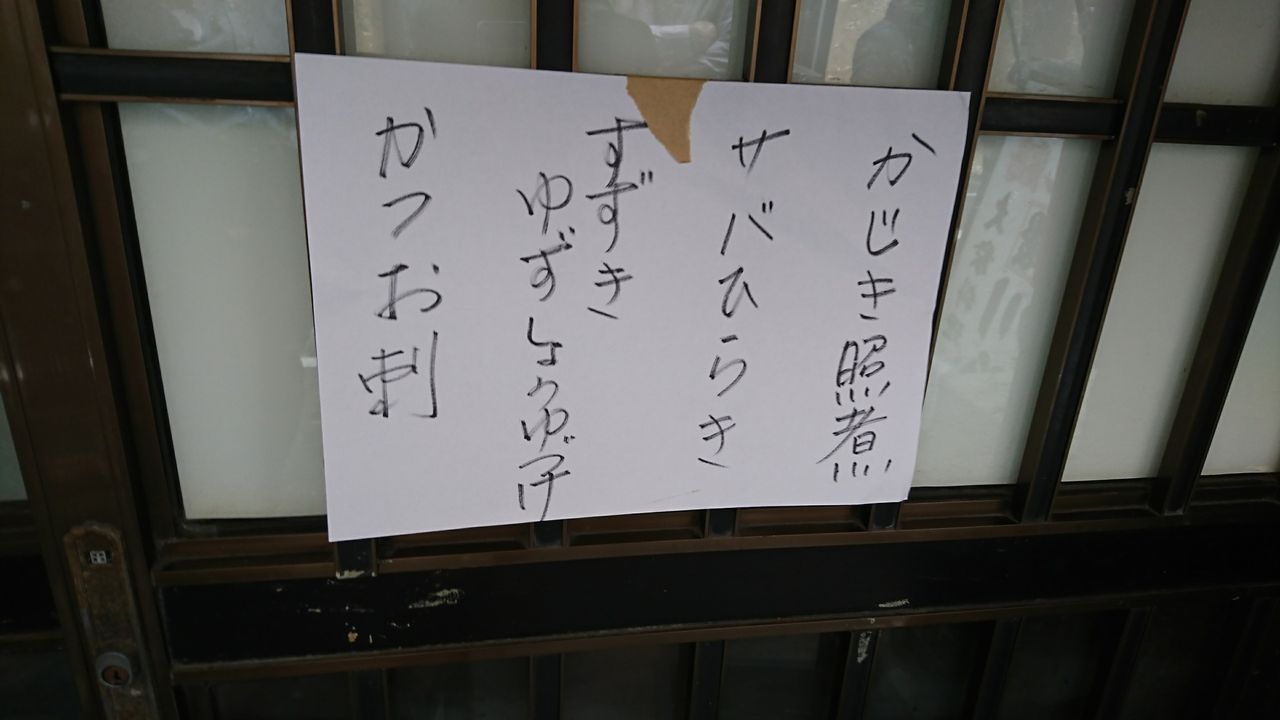 かじき照煮
サバひらき
すずき
ゆずしょうゆ漬
かつお刺